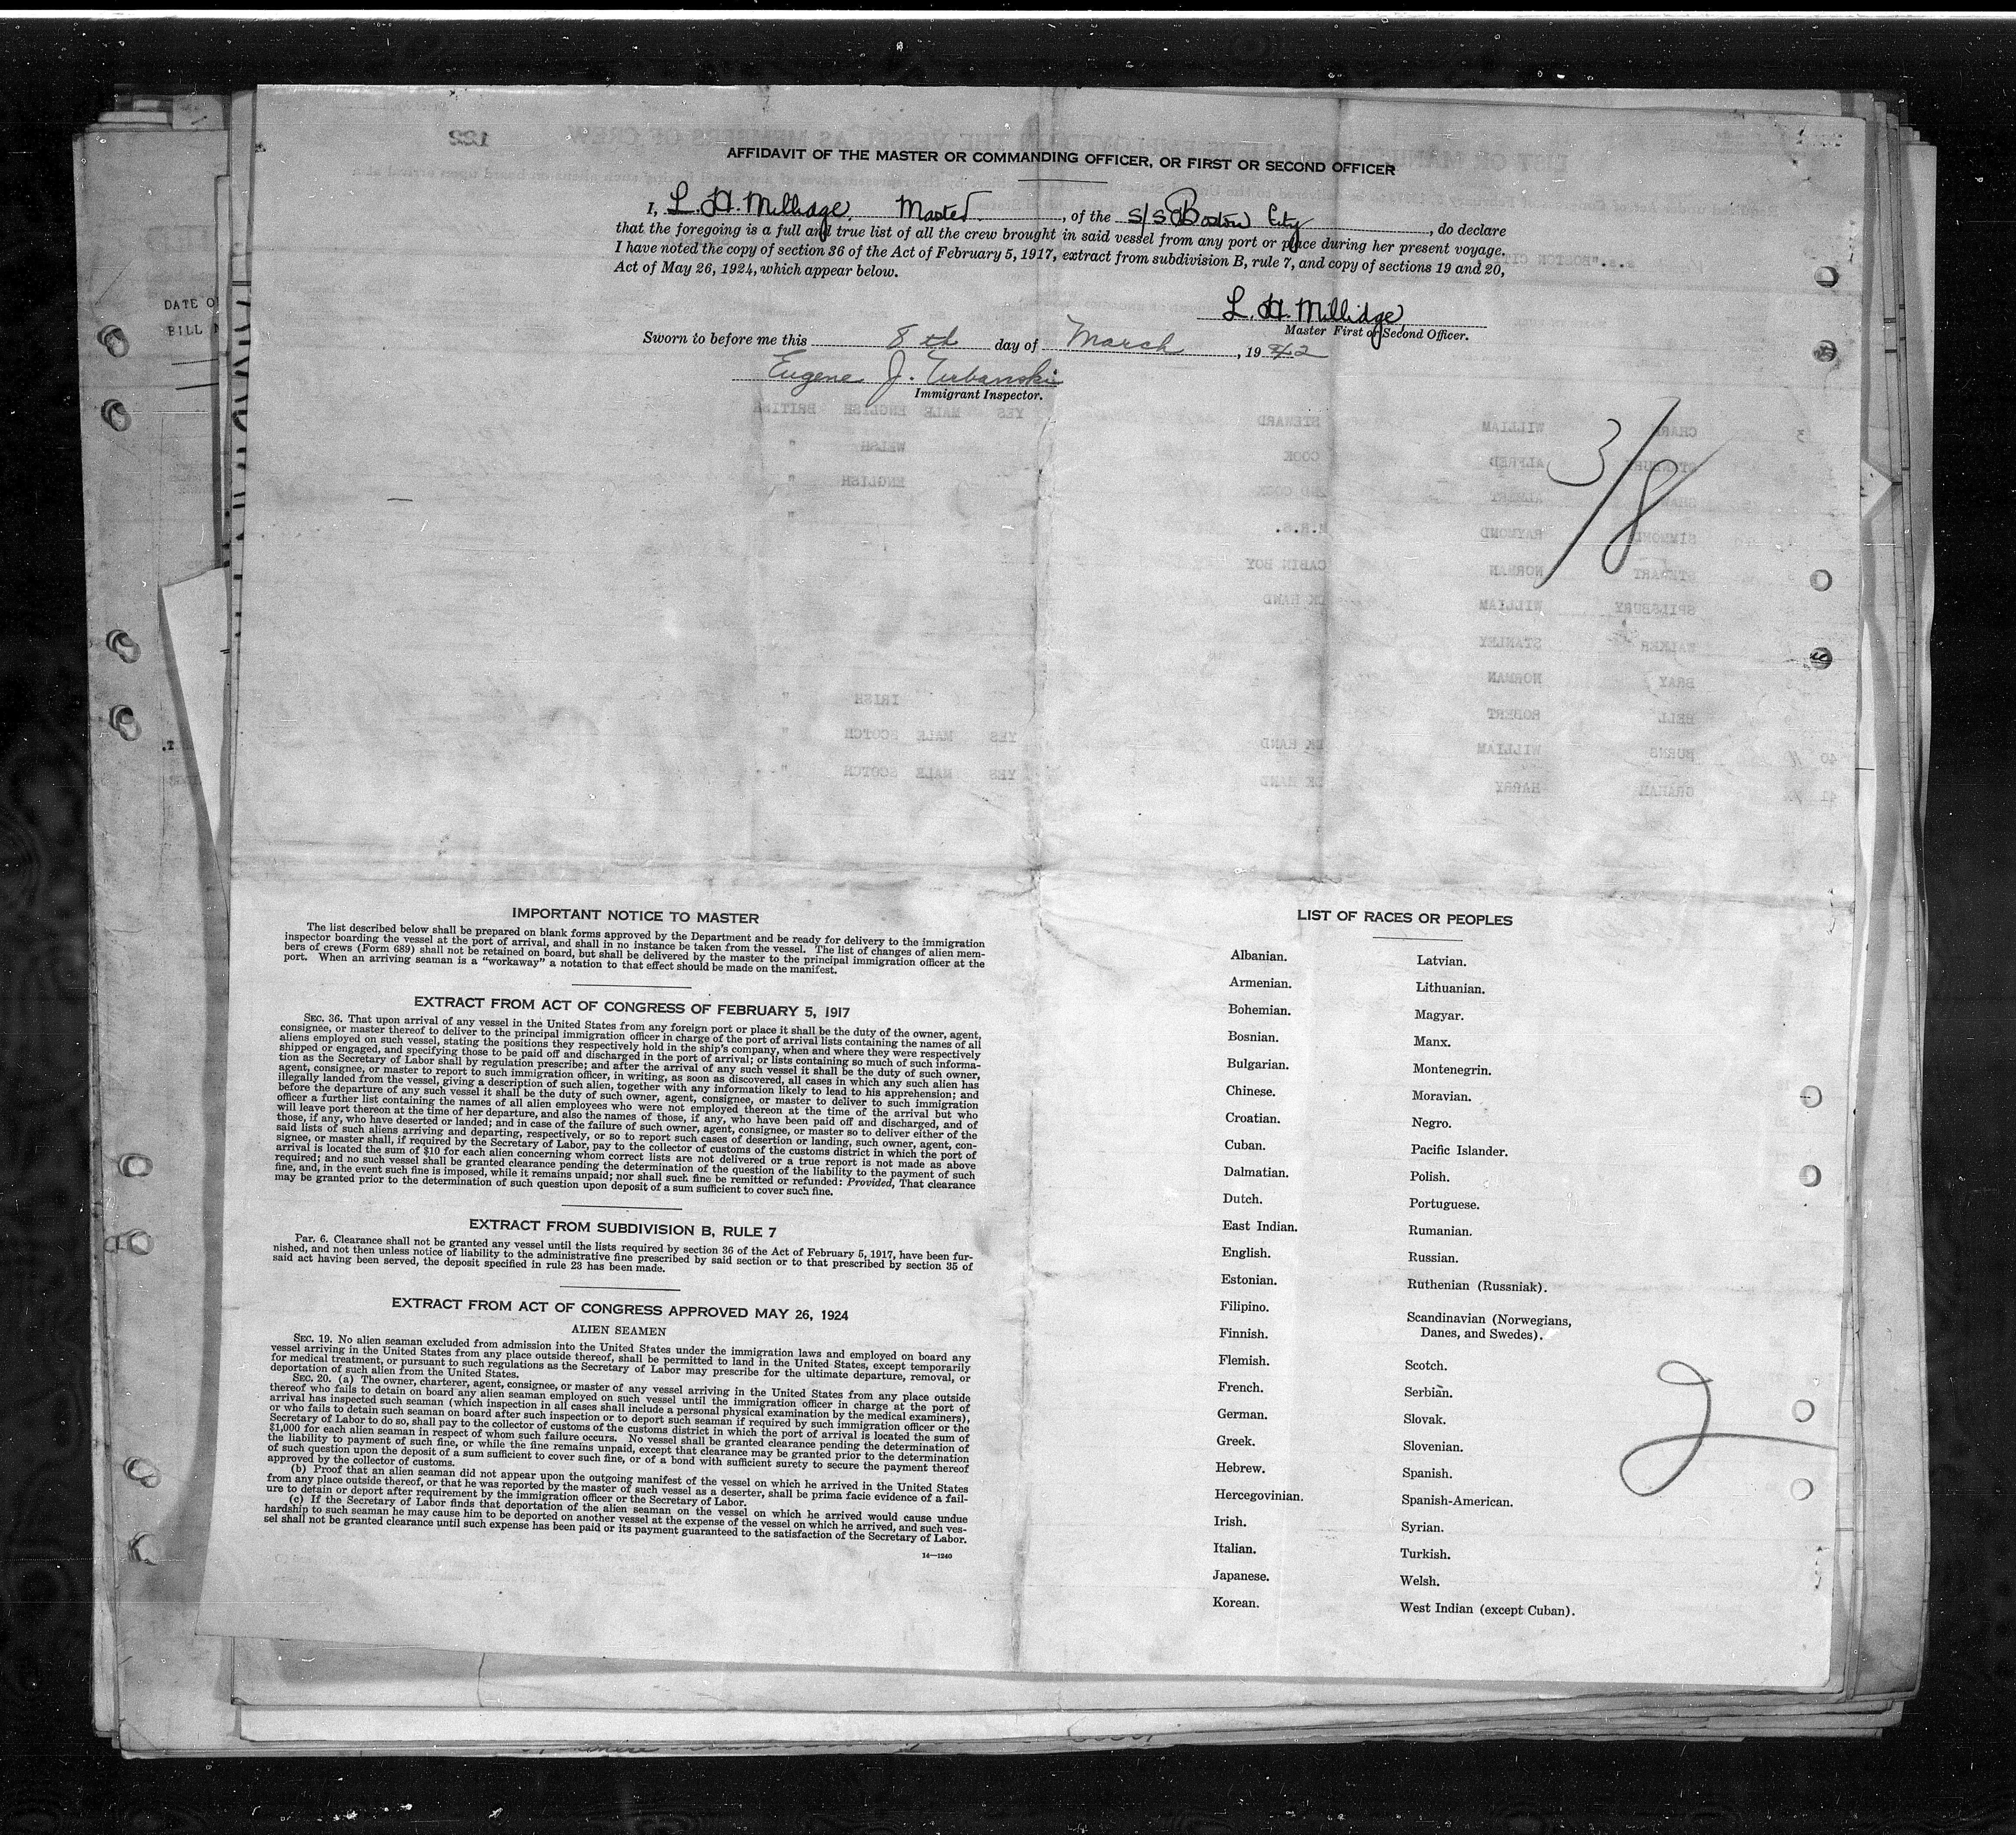 AFFIDAVIT OF THE MASTER OR COMMANDING OFFICER, OR FIRST OR SECOND OFFICER
I, L. H. Millidge, Master, of the S/S Boston City, do declare
that the foregoing is a full and true list of all the crew brought in said vessel from any port or place during her present voyage.
I have noted the copy of section 36 of the Act of February 5, 1917, extract from subdivision B, rule 7, and copy of sections 19 and 20,
Act of May 26, 1924, which appear below.
L. H. Millidge
Master First or Second Officer.
Sworn to before me this 8th day of March, 1942
Eugene J. Urbanski
Immigrant Inspector.
3/8
DATE O
BILL
IMPORTANT NOTICE TO MASTER
The list described below shall be prepared on blank forms approved by the Department and be ready for delivery to the immigration
inspector boarding the vessel at the port of arrival, and shall in no instance be taken from the vessel. The list of changes of alien mem-
bers of crews (Form 689) shall not be retained on board, but shall be delivered by the master to the principal immigration officer at the
port. When an arriving seaman is a "workaway" a notation to that effect should be made on the manifest.
EXTRACT FROM ACT OF CONGRESS OF FEBRUARY 5, 1917
SEC. 36. That upon arrival of any vessel in the United States from any foreign port or place it shall be the duty of the owner, agent,
consignee, or master thereof to deliver to the principal immigration officer in charge of the port of arrival lists containing the names of all
aliens employed on such vessel, stating the positions they respectively hold in the ship's company, when and where they were respectively
shipped or engaged, and specifying those to be paid off and discharged in the port of arrival; or lists containing so much of such informa-
tion as the Secretary of Labor shall by regulation prescribe; and after the arrival of any such vessel it shall be the duty of such owner,
agent, consignee, or master to report to such immigration officer, in writing, as soon as discovered, all cases in which any such alien has
illegally landed from the vessel, giving a description of such alien, together with any information likely to lead to his apprehension; and
before the departure of any such vessel it shall be the duty of such owner, agent, consignee, or master to deliver to such immigration
officer a further list containing the names of all alien employees who were not employed thereon at the time of the arrival but who
will leave port thereon at the time of her departure, and also the names of those, if any, who have been paid off and discharged, and of
those, if any, who have deserted or landed; and in case of the failure of such owner, agent, consignee, or master so to deliver either of the
said lists of such aliens arriving and departing, respectively, or so to report such cases of desertion or landing, such owner, agent, con-
signee, or master shall, if required by the Secretary of Labor, pay to the collector of customs of the customs district in which the port of
arrival is located the sum of $10 for each alien concerning whom correct lists are not delivered or a true report is not made as above
required; and no such vessel shall be granted clearance pending the determination of the question of the liability to the payment of such
fine, and, in the event such fine is imposed, while it remains unpaid; nor shall such fine be remitted or refunded: Provided, That clearance
may be granted prior to the determination of such question upon deposit of a sum sufficient to cover such fine.
EXTRACT FROM SUBDIVISION B, RULE 7
PAR. 6. Clearance shall not be granted any vessel until the lists required by section 36 of the Act of February 5, 1917, have been fur-
nished, and not then unless notice of liability to the administrative fine prescribed by said section or to that prescribed by section 35 of
said act having been served, the deposit specified in rule 23 has been made.
EXTRACT FROM ACT OF CONGRESS APPROVED MAY 26, 1924
ALIEN SEAMEN
SEC. 19. No alien seaman excluded from admission into the United States under the immigration laws and employed on board any
vessel arriving in the United States from any place outside thereof, shall be permitted to land in the United States, except temporarily
for medical treatment, or pursuant to such regulations as the Secretary of Labor may prescribe for the ultimate departure, removal, or
deportation of such alien from the United States.
SEC. 20. (a) The owner, charterer, agent, consignee, or master of any vessel arriving in the United States from any place outside
thereof who fails to detain on board any alien seaman employed on such vessel until the immigration officer in charge at the port of
arrival has inspected such seaman (which inspection in all cases shall include a personal physical examination by the medical examiners),
or who fails to detain such seaman on board after such inspection or to deport such seaman if required by such immigration officer or the
Secretary of Labor to do so, shall pay to the collector of customs of the customs district in which the port of arrival is located the sum of
$1,000 for each alien seaman in respect of whom such failure occurs. No vessel shall be granted clearance pending the determination of
the liability to payment of such fine, or while the fine remains unpaid, except that clearance may be granted prior to the determination
of such question upon the deposit of a sum sufficient to cover such fine, or of a bond with sufficient surety to secure the payment thereof
approved by the collector of customs.
(b) Proof that an alien seaman did not appear upon the outgoing manifest of the vessel on which he arrived in the United States
from any place outside thereof, or that he was reported by the master of such vessel as a deserter, shall be prima facie evidence of a fail-
ure to detain or deport after requirement by the immigration officer or the Secretary of Labor.
(c) If the Secretary of Labor finds that deportation of the alien seaman on the vessel on which he arrived would cause undue
hardship to such seaman he may cause him to be deported on another vessel at the expense of the vessel on which he arrived, and such ves-
sel shall not be granted clearance until such expense has been paid or its payment guaranteed to the satisfaction of the Secretary of Labor.
14—1240
LIST OF RACES OR PEOPLES
Albanian.
Armenian.
Bohemian.
Bosnian.
Bulgarian.
Chinese.
Croatian.
Cuban.
Dalmatian.
Dutch.
East Indian.
English.
Estonian.
Filipino.
Finnish.
Flemish.
French.
German.
Greek.
Hebrew.
Hercegovinian.
Irish.
Italian.
Japanese.
Korean.
Latvian.
Lithuanian.
Magyar.
Manx.
Montenegrin.
Moravian.
Negro.
Pacific Islander.
Polish.
Portuguese.
Rumanian.
Russian.
Ruthenian (Russniak).
Scandinavian (Norwegians,
Danes, and Swedes).
Scotch.
Serbian.
Slovak.
Slovenian.
Spanish.
Spanish-American.
Syrian.
Turkish.
Welsh.
West Indian (except Cuban).
2